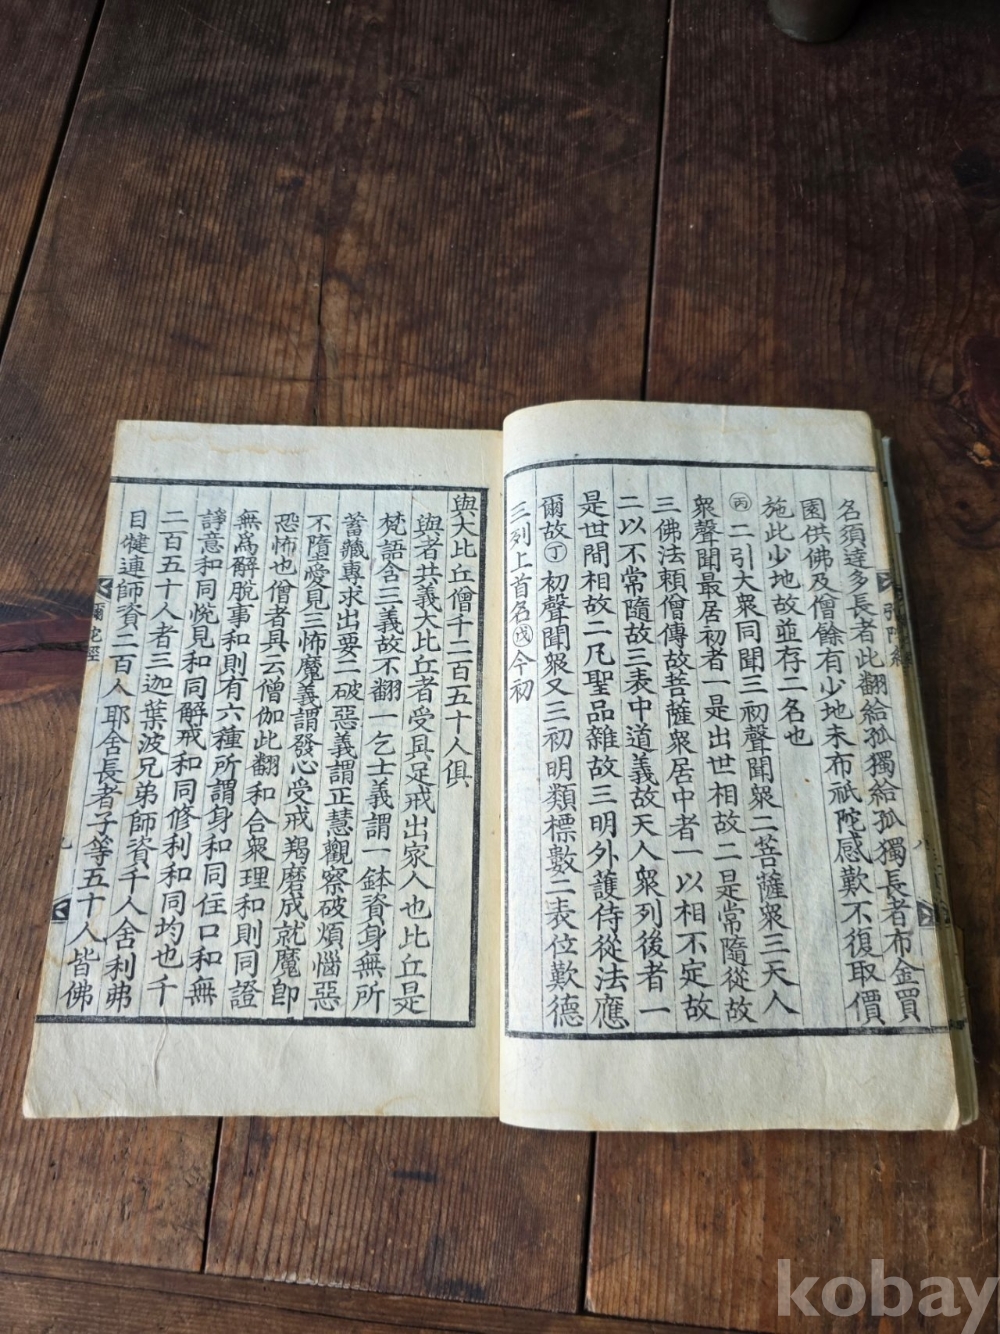 名須達多長者此翻給孤獨給孤獨長者布金買
園供佛及僧餘有少地未布祇陀感歎不復取價
施此少地故並存二名也
丙二引大衆同聞三初聲聞衆二菩薩衆三天人
衆聲聞最居初者一是出世相故二是常隨從故
三佛法賴僧傳故菩薩衆居中者一以相不定故
二以不常隨故三表中道義故天人衆列後者一
是世間相故二凡聖品雜故三明外護侍從法應
爾故丁初聲聞衆又三初明類標數二表位歎德
三列上首名戊今初
八
與大比丘僧千二百五十人俱
與者共義大比丘者受具足戒出家人也比丘是
梵語含三義故不翻一乞士義謂一鉢資身無所
蓄藏專求出要二破惡義謂正慧觀察破煩惱惡
不墮愛見三怖魔義謂發心受戒羯磨成就魔卽
恐怖也僧者具云僧伽此翻和合衆理和則同證
無爲解脫事和則有六種所謂身和同住口和無
諍意和同悅見和同解戒和同修利和同均也千
二百五十人者三迦葉波兄弟師資千人舍利弗
目犍連師資二百人耶舍長者子等五十人皆佛
彌陀經
九
kobay